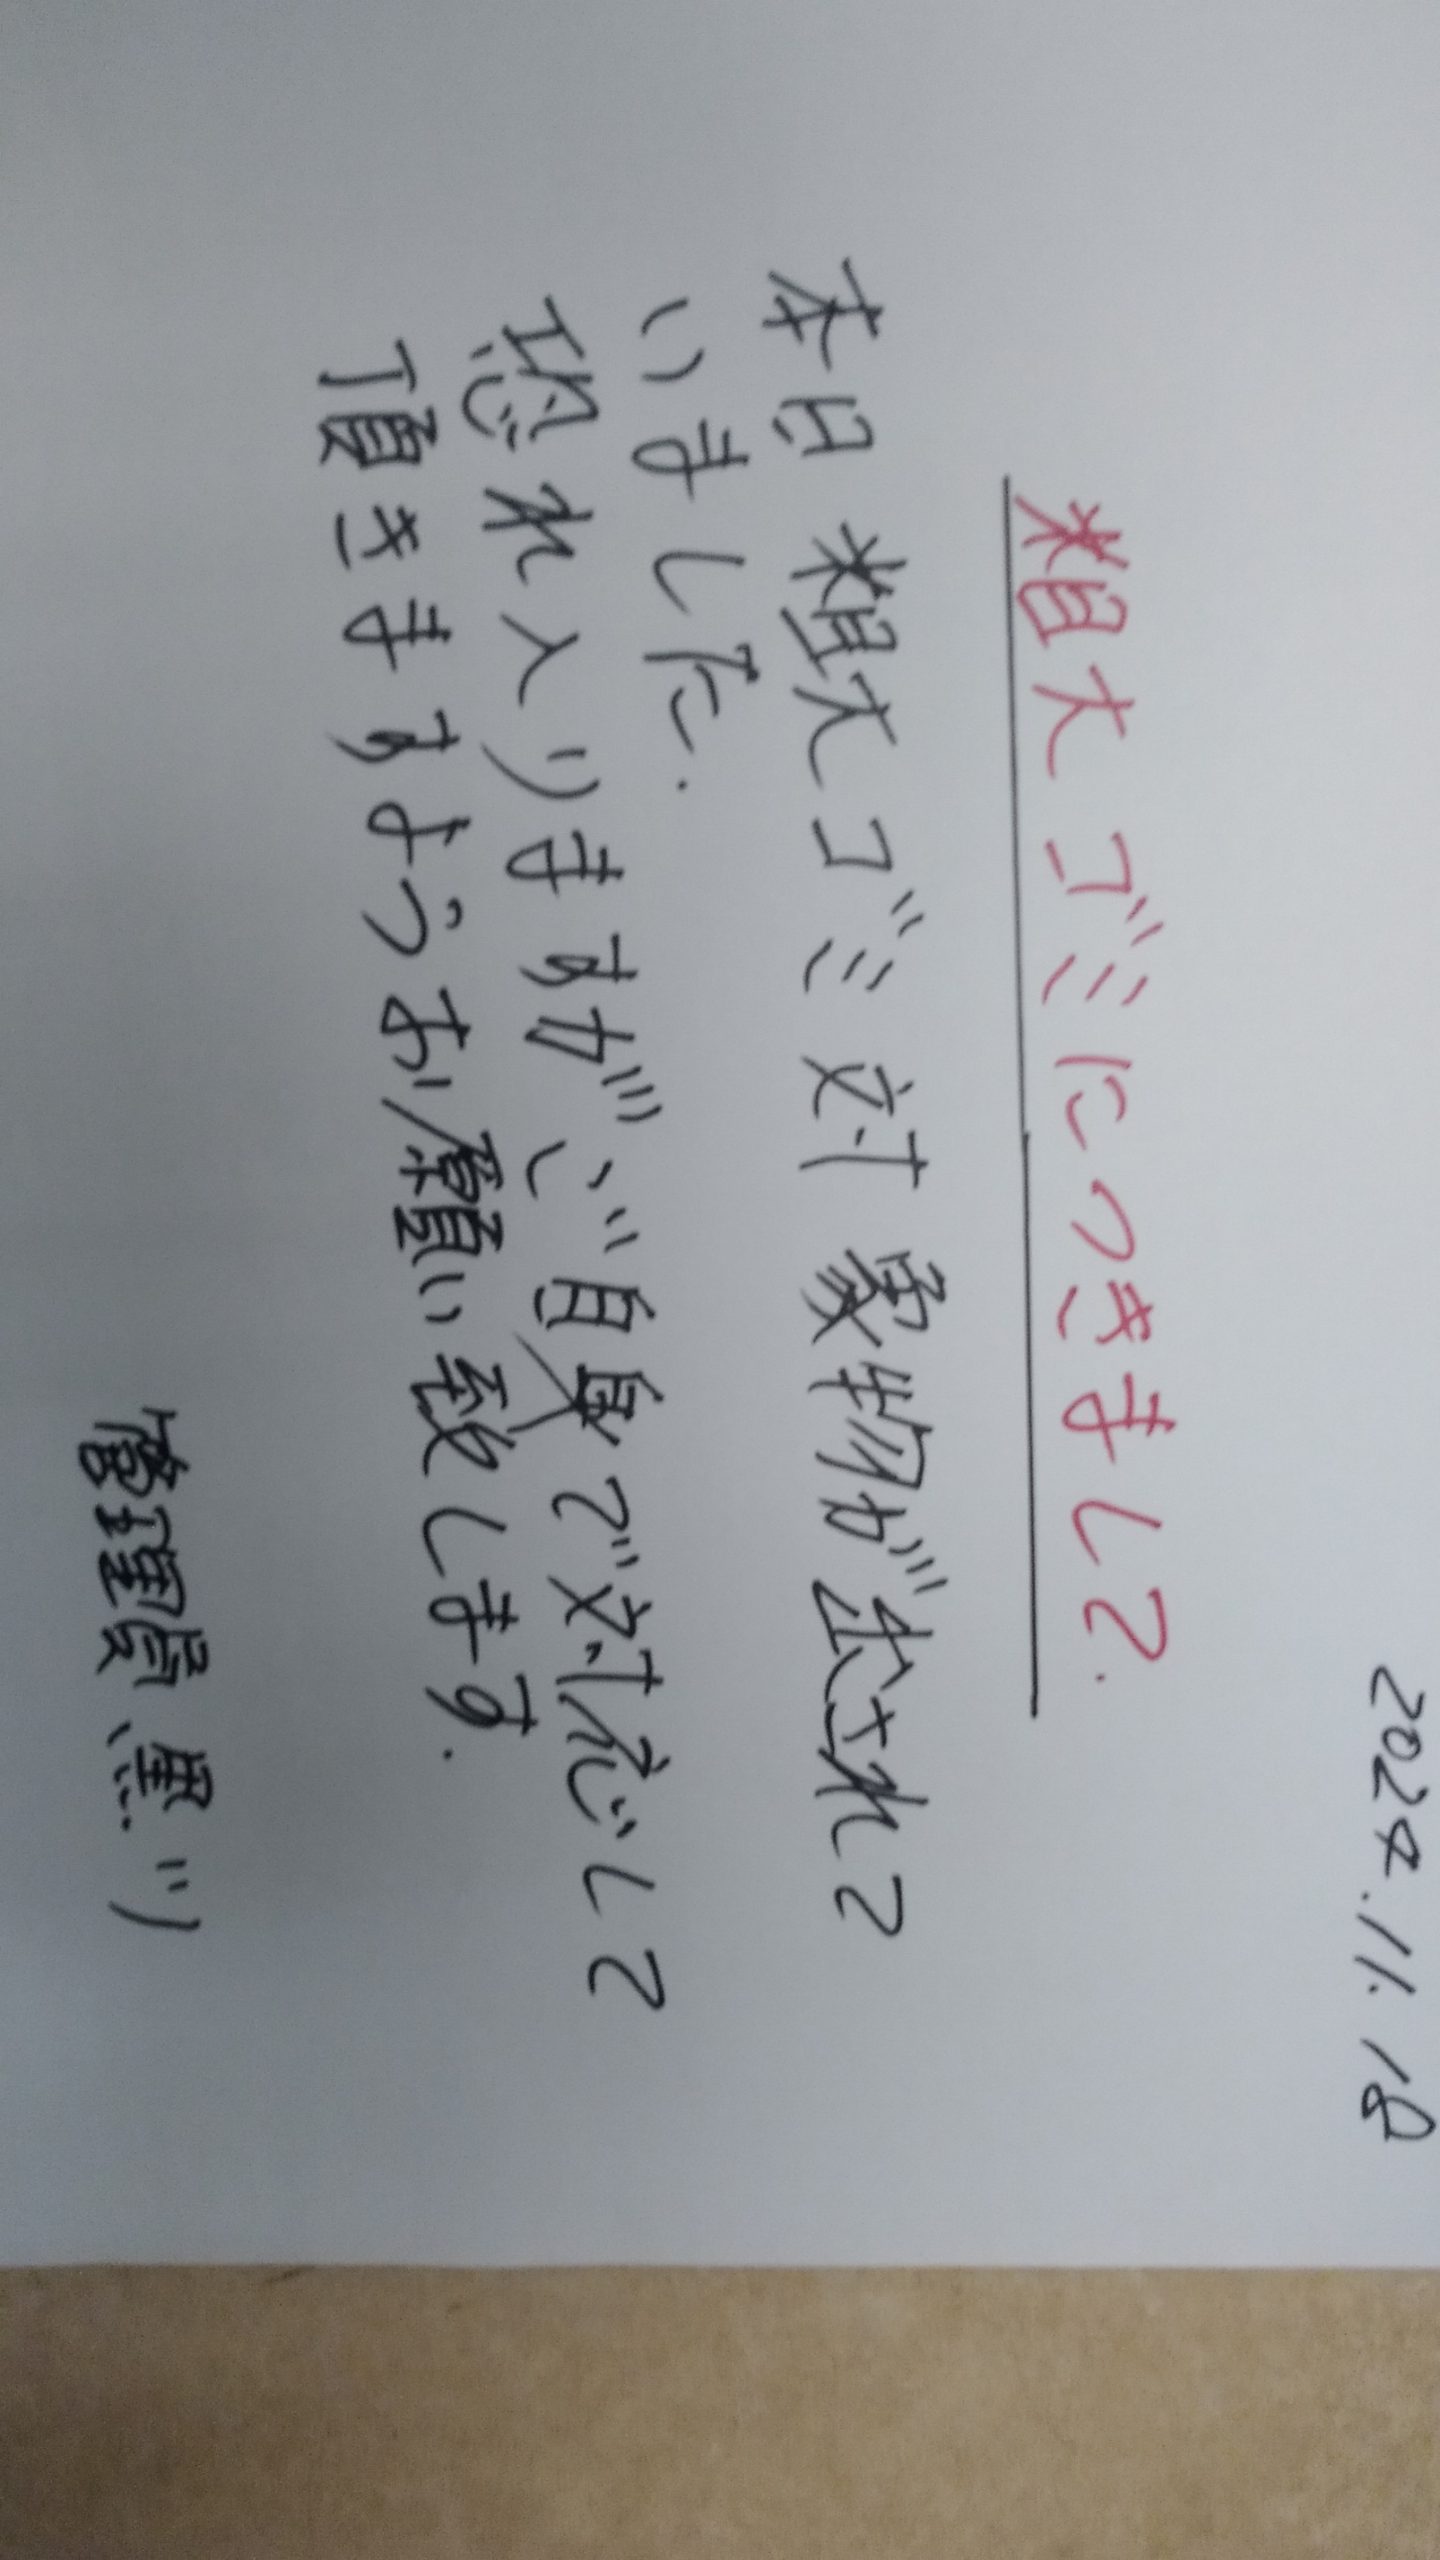 2024.11.18
粗大ゴミにつきまして.
本日粗大ゴミ対象物が出されて
いました.
恐れ入りますが、ご自身で対応して
頂きますようお願い致します.
管理員 黒